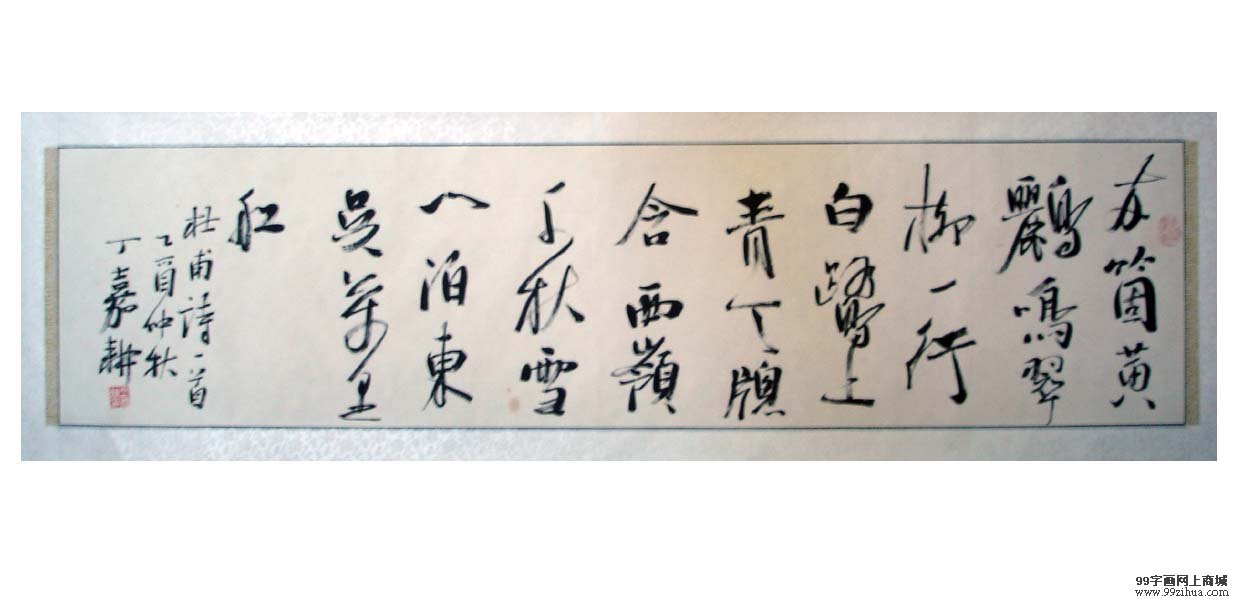 两箇黄
鸝鳴翠
柳一行
白鷺上
青天牕
含西嶺
千秋雪
门泊東
吳萬里
船
杜甫詩一首
乙酉仲秋
丁嘉耕
99字画网上商城
www.99zihua.com